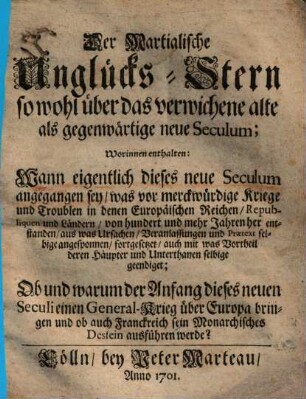 Der Martialische
Unglücks-Stern
so wohl über das verwichene alte
als gegenwärtige neue Seculum;
Worinnen enthalten:
Wann eigentlich dieses neue Seculum
angegangen sey/ was vor merckwürdige Kriege
und Troublen in denen Europäischen Reichen/ Republ-
liquen und Ländern/ von hundert und mehr Jahren her ent-
standen/ aus was Ursachen/ Veranlassungen und Prætext sel-
bige angesponnen/ fortgesetzet/ auch mit was Vortheil
deren Häupter und Unterthanen selbige
geendiget;
Ob und warum der Anfang dieses neuen
Seculi einen General-Krieg über Europa brin-
gen und ob auch Franckreich sein Monarchisches
Dessein ausführen werde?
Cölln/ bey Peter Marteau/
Anno 1701.